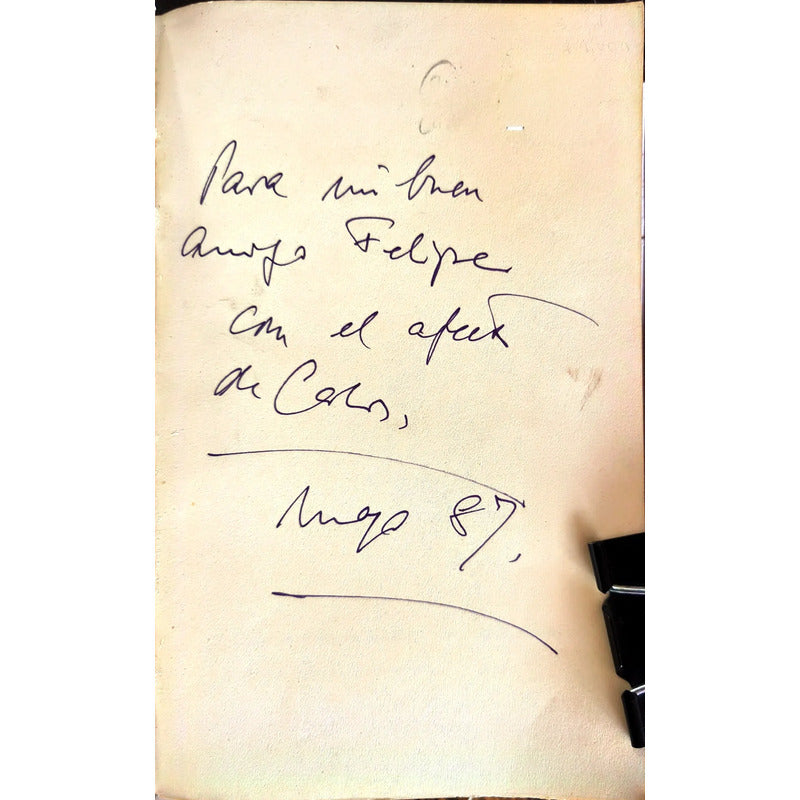 Para mi buen
amigo Felipe
con el afecto
de Carlos,
87,